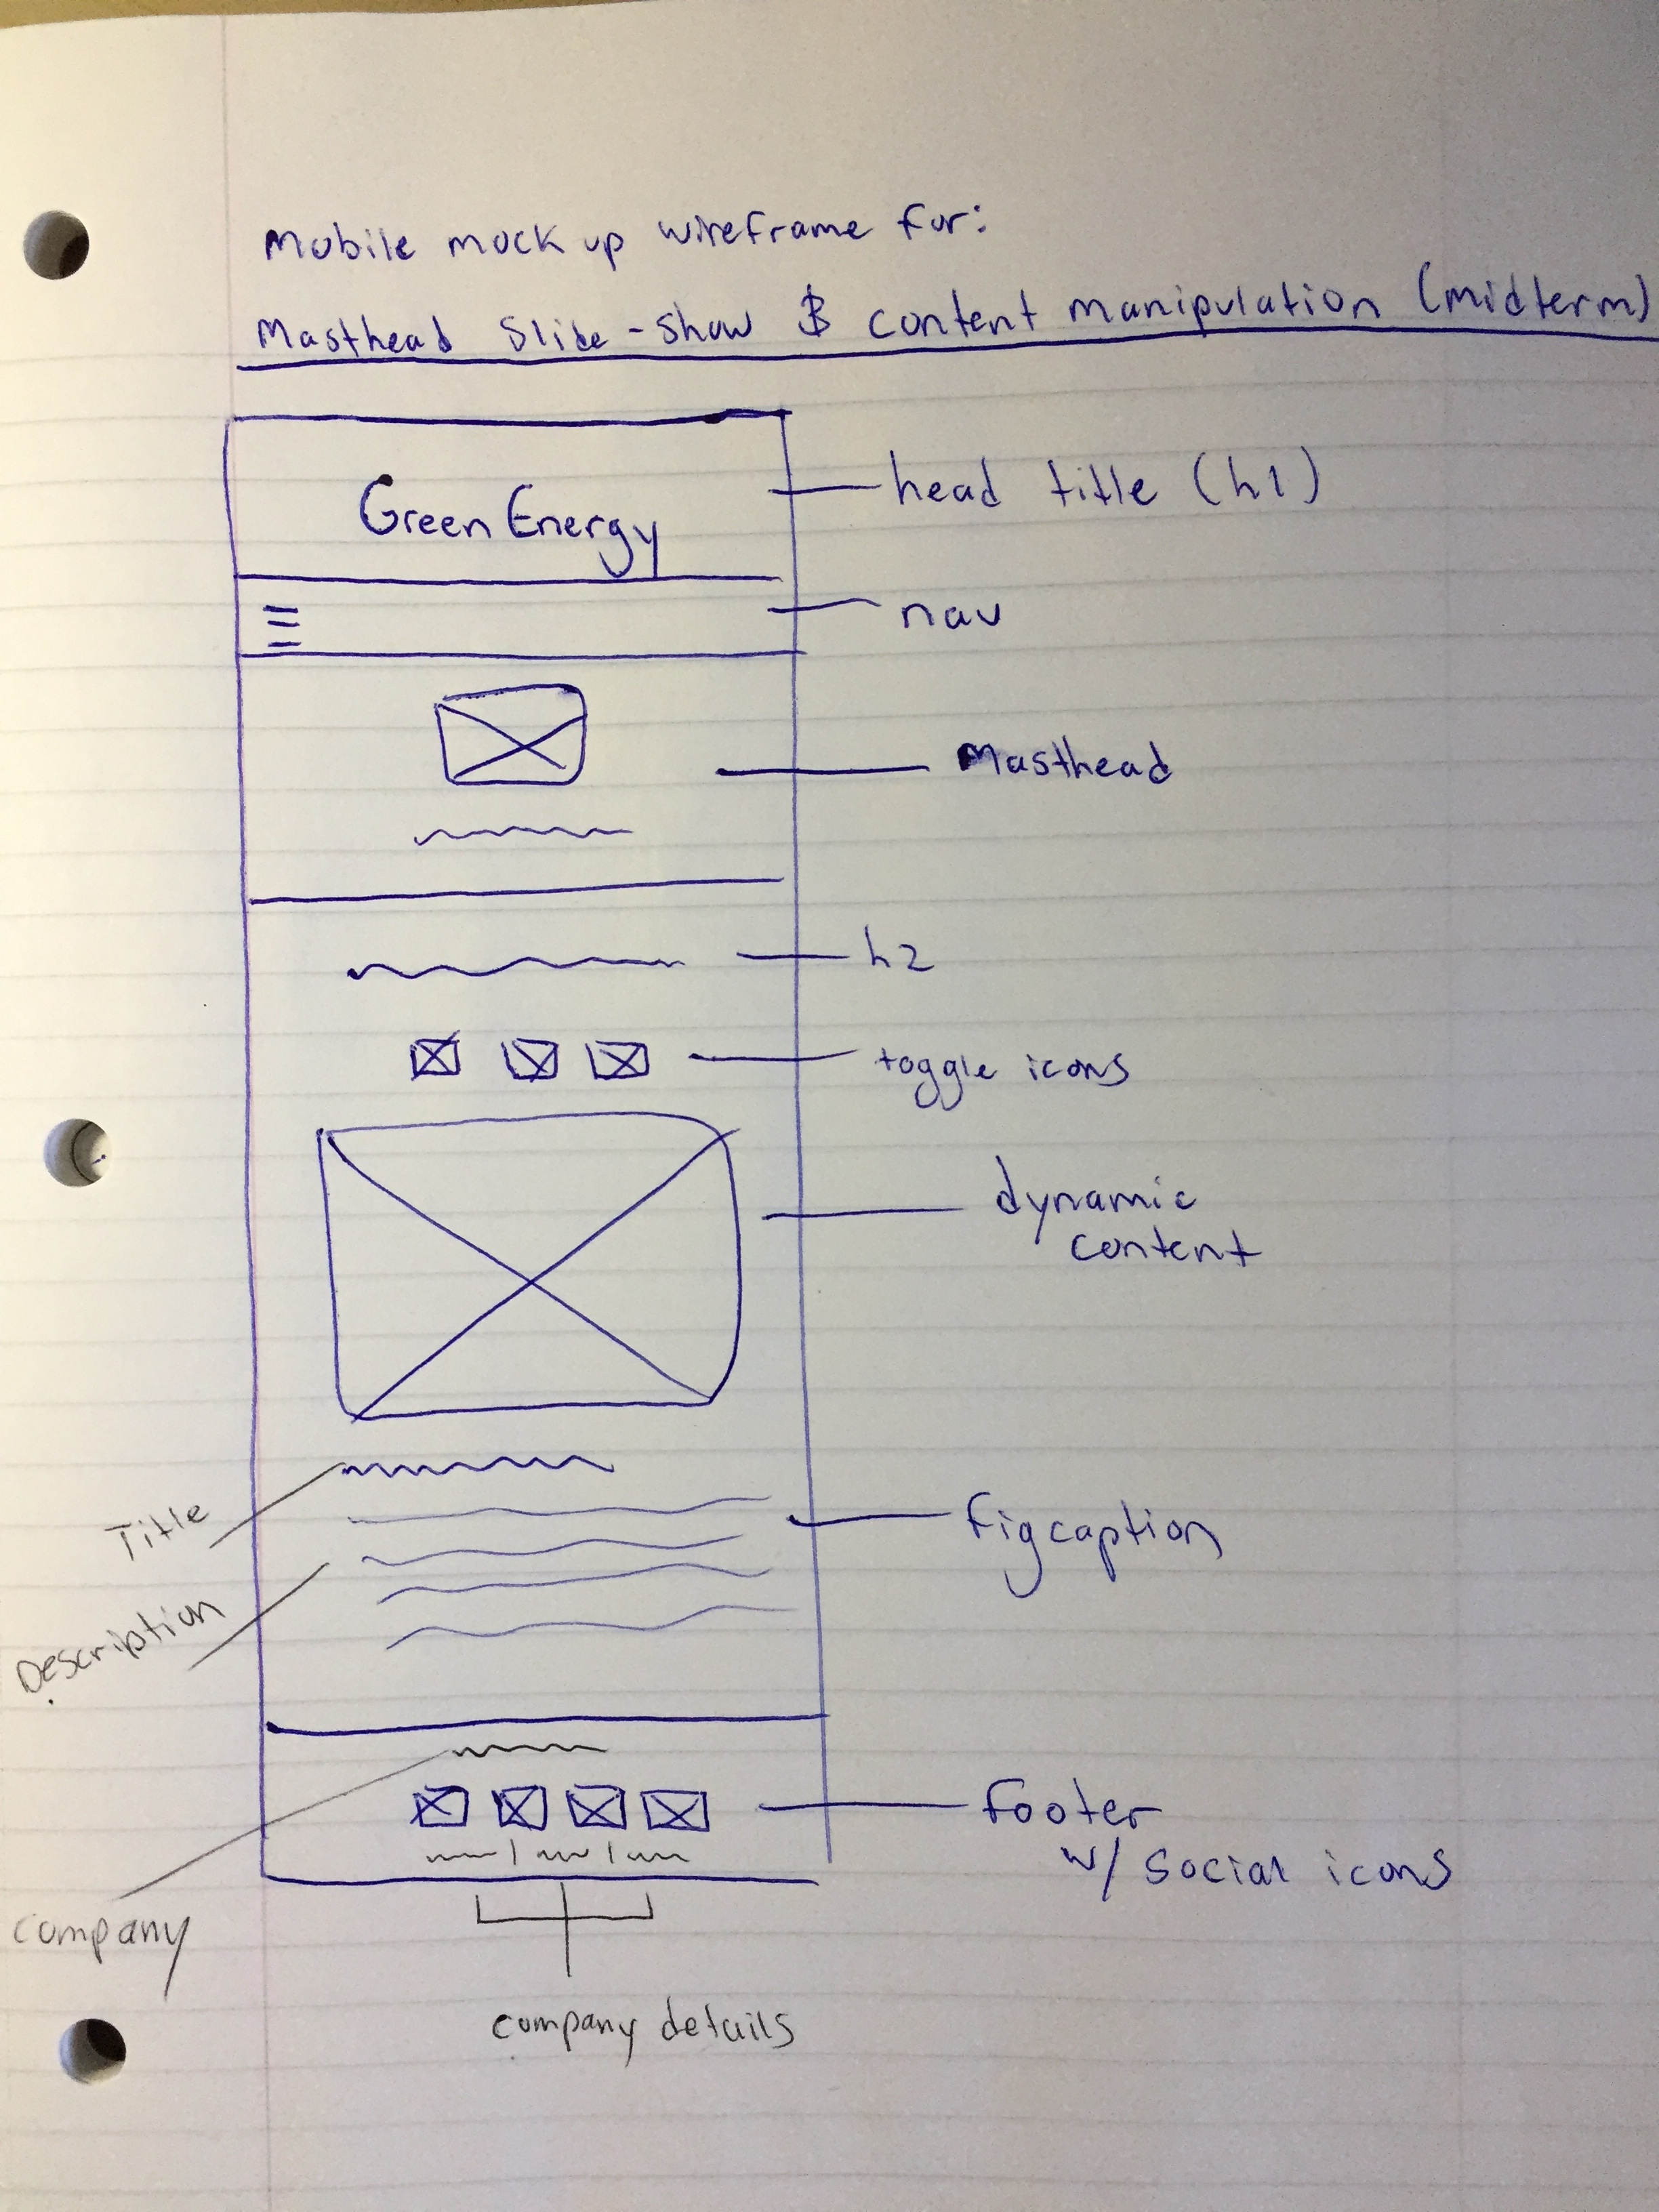 Mobile mock up wireframe for:
Masthead Slide-show & content manipulation (midterm)
Green Energy
head title (h1)
nav
Masthead
h2
toggle icons
dynamic
content
Title
Description
figcaption
footer
w/ social icons
company
company details